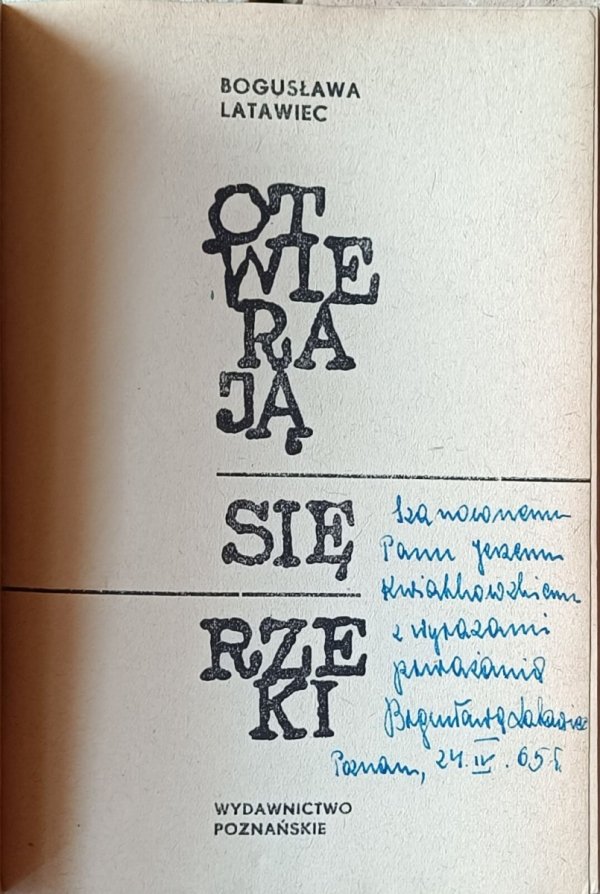 BOGUSŁAWA
LATAWIEC
OT
WIE
RA
JĄ
SIĘ
RZE
KI
Szanownemu
Panu Jerzemu
Kwiatkowskiemu
z wyrazami
poważania
Bogusława Latawiec
Poznań, 24. IV. 65 r.
WYDAWNICTWO
POZNAŃSKIE